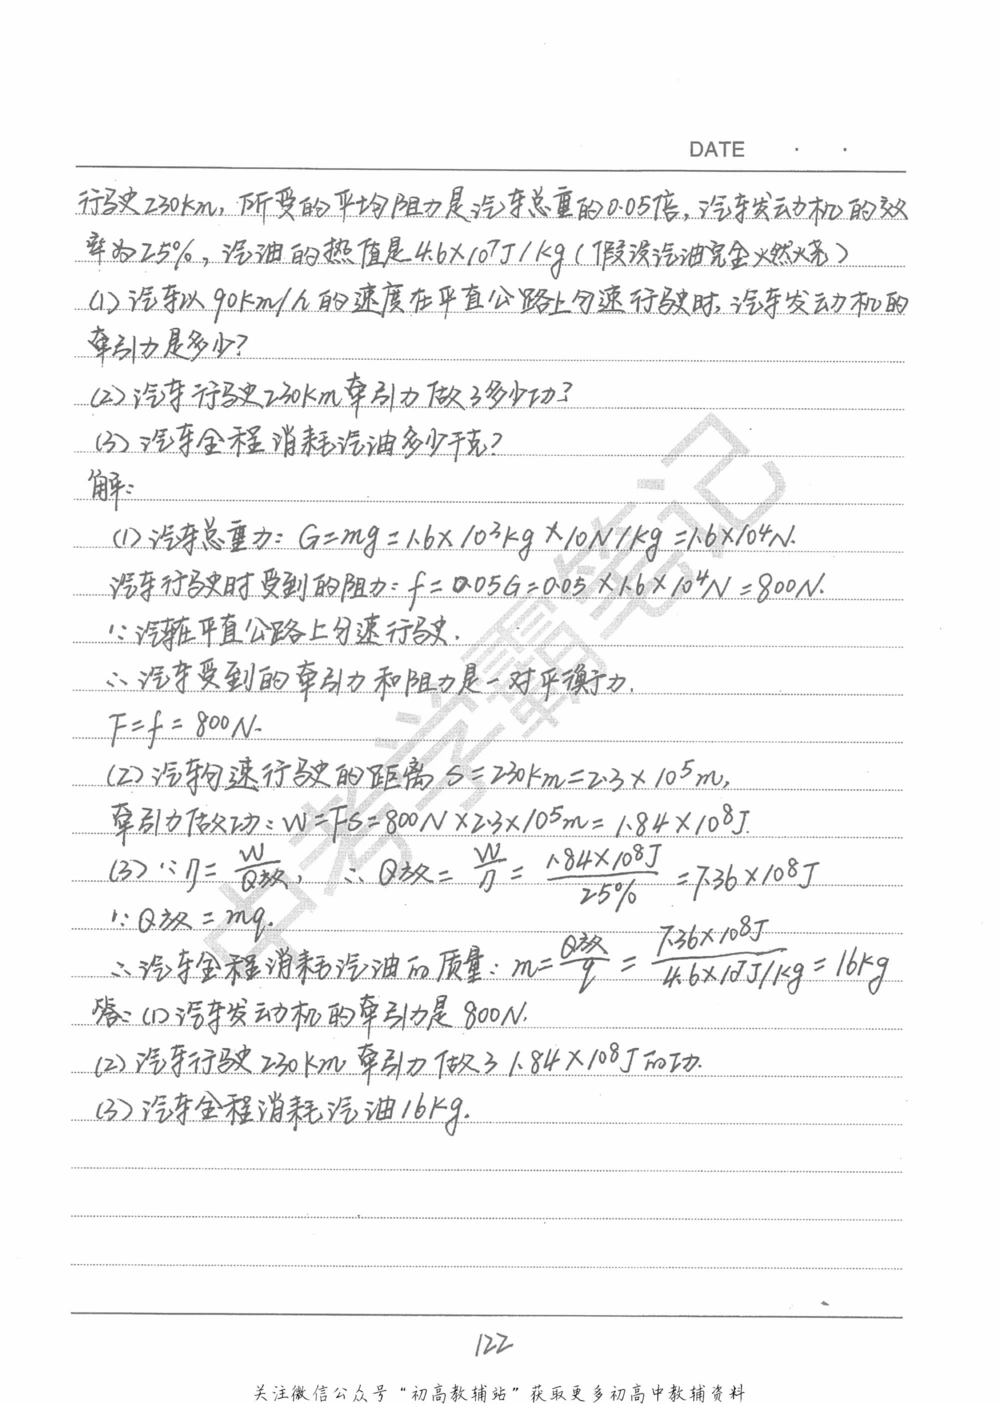 DATE · ·
行驶230km，所受的平均阻力是汽车总重的0.05倍，汽车发动机的效
率为25%，汽油的热值是4.6×10⁷J/kg（假设汽油完全燃烧）
(1)汽车以90km/h的速度在平直公路上匀速行驶时，汽车发动机的
牵引力是多少？
(2)汽车行驶230km牵引力做了多少功？
(3)汽车全程消耗汽油多少千克？
解：
(1)汽车总重力：G=mg=1.6×10³kg×10N/kg=1.6×10⁴N.
汽车行驶时受到的阻力：f=0.05G=0.05×1.6×10⁴N=800N.
∵汽车在平直公路上匀速行驶.
∴汽车受到的牵引力和阻力是一对平衡力.
F=f=800N.
(2)汽车匀速行驶的距离S=230km=2.3×10⁵m,
牵引力做功：W=FS=800N×2.3×10⁵m=1.84×10⁸J.
(3)∵η=W/Q放，∴Q放=W/η=1.84×10⁸J/25%=7.36×10⁸J
∵Q放=mq.
∴汽车全程消耗汽油的质量：m=Q放/q=7.36×10⁸J/4.6×10⁷J/kg=16kg
答：(1)汽车发动机的牵引力是800N.
(2)汽车行驶230km牵引力做了1.84×10⁸J的功.
(3)汽车全程消耗汽油16kg.
中考学霸笔记
122
关注微信公众号“初高教辅站”获取更多初高中教辅资料